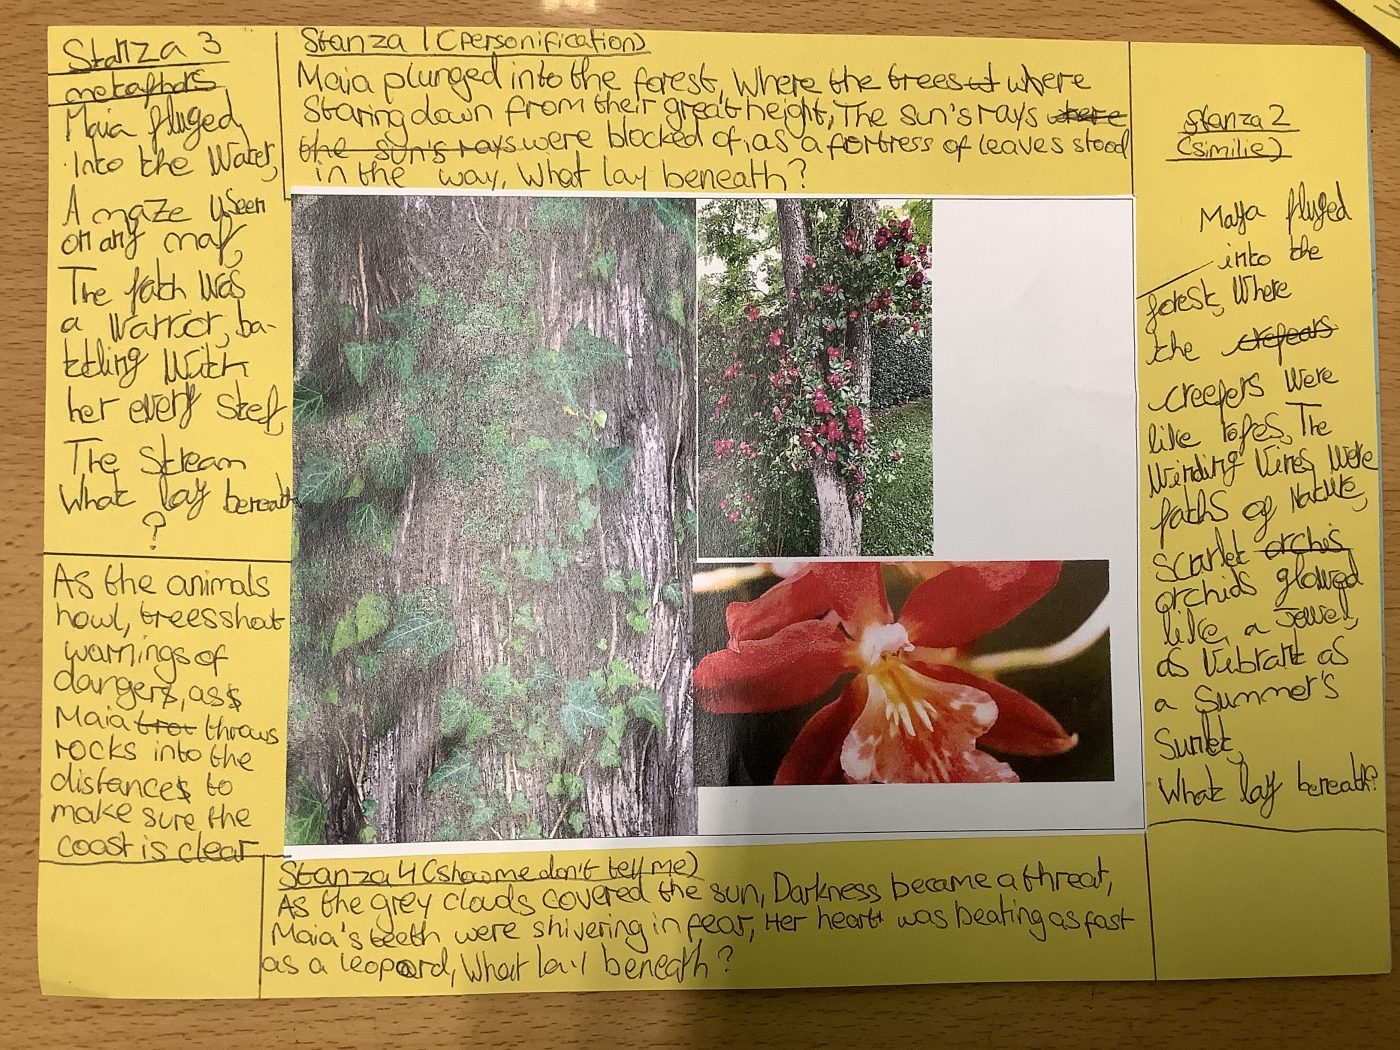 Stanza 1 (personification)
Maia plunged into the forest, Where the trees ut where
Staring down from their great height, The sun's rays were
the sun's rays were blocked of, as a fortress of leaves stood
in the way, What lay beneath?
stanza 2
(similie)
Maya pluged
into the
forest, Where
the crepears
creepers were
like ropes, The
Winding Vines, Were
paths of Nature,
scarlet orchis
orchids glowed
like a Jewel,
as Vibrant as
a Summer's
Sunset,
What lay beneath?
Stanza 3
metaphors
Maia pluged
into the Water,
A maze useen
on any map,
The path was
a Warrior, ba-
ttling With
her every Step,
The Stream
What lay beneath
?
As the animals
howl, trees shout
warnings of
dangers, ass
Maia throws
rocks into the
distances to
make sure the
coast is clear
Stanza 4 (show me don't tell me)
As the grey clouds covered the sun, Darkness became a threat,
Maia's teeth were shivering in fear, Her heart was beating as fast
as a leopard, What lay beneath?